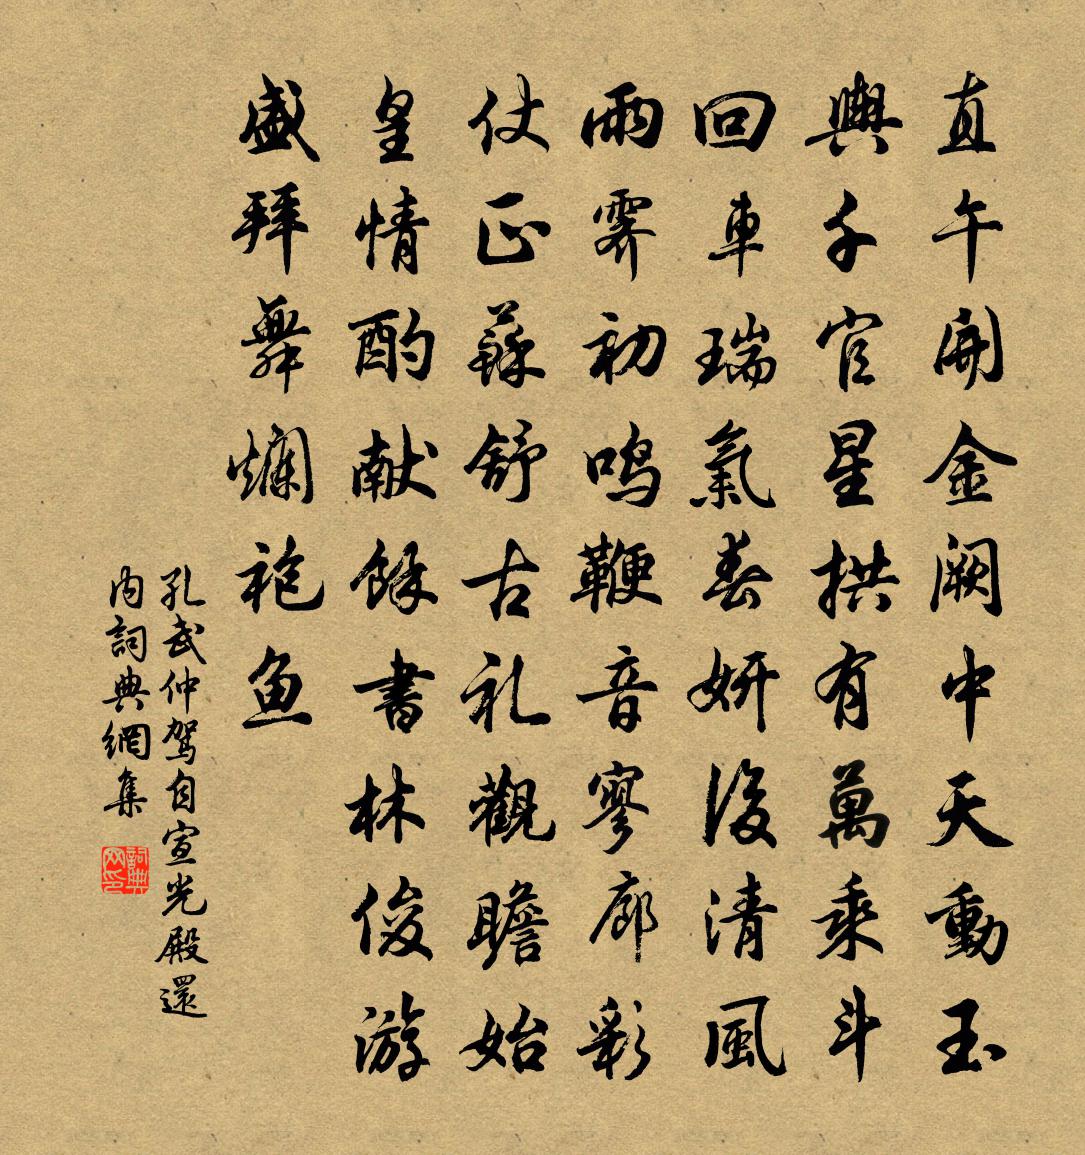 直午開金闕中天動玉
輿千官星拱有萬乘斗
回車瑞氣春妍後清風
雨霽初鸣鞭音寥廓彩
仗正蘇舒古礼觀瞻始
皇情酌献餘書林俊游
盛拜舞爛袍魚
孔武仲駕自宣光殿還
内詞典網集
詞典網印